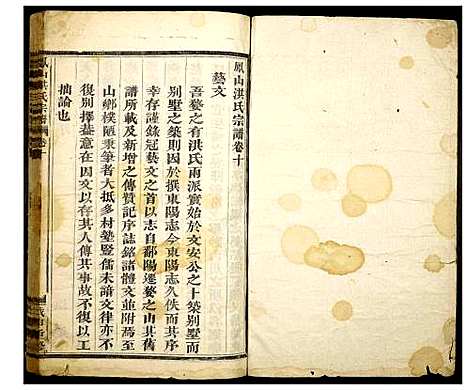 鳳山洪氏宗譜卷十
藝文
吾婺之有洪氏兩派實始於文安公之十築別墅而
別墅之築則因於撰東陽志今東陽志久佚而其序
幸存謹錄冠藝文之首以志自鄱陽遷婺之由其舊
譜所載及新增之傳贊記序誌銘諸體文並附焉至
山鄉樸陋秉筆者大抵多村塾豎儒未諳文律亦不
復別擇蓋意在因文以存其人傳其事故不復以工
拙論也
鳳山洪氏宗譜 卷十